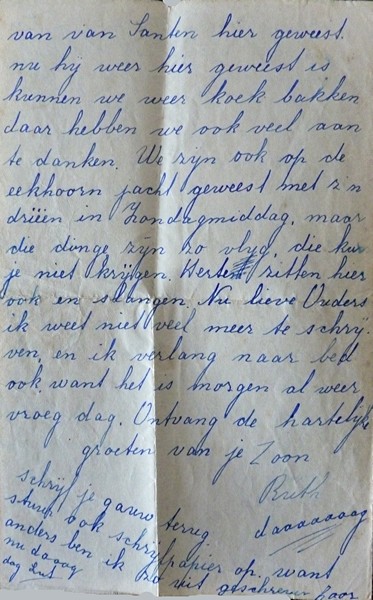 van van Santen hier geweest.
nu hij weer hier geweest is
kunnen we weer koek bakken
daar hebben we ook veel aan
te danken. We zijn ook op de
eekhoorn jacht geweest met z'n
drieën in Zondagmiddag, maar
die dinge zijn zo vlug, die kun
je niet krijgen. Herten zitten hier
ook en slangen. Nu lieve Ouders
ik weet niet veel meer te schrij-
ven, en ik verlang naar bed
ook want het is morgen al weer
vroeg dag. Ontvang de hartelijke
groeten van je Zoon
daaaaaaag
schrijf je gauw terug
stuur ook schrijfpapier op. want
anders ben ik zo uit geschreven
nu daaag
dag